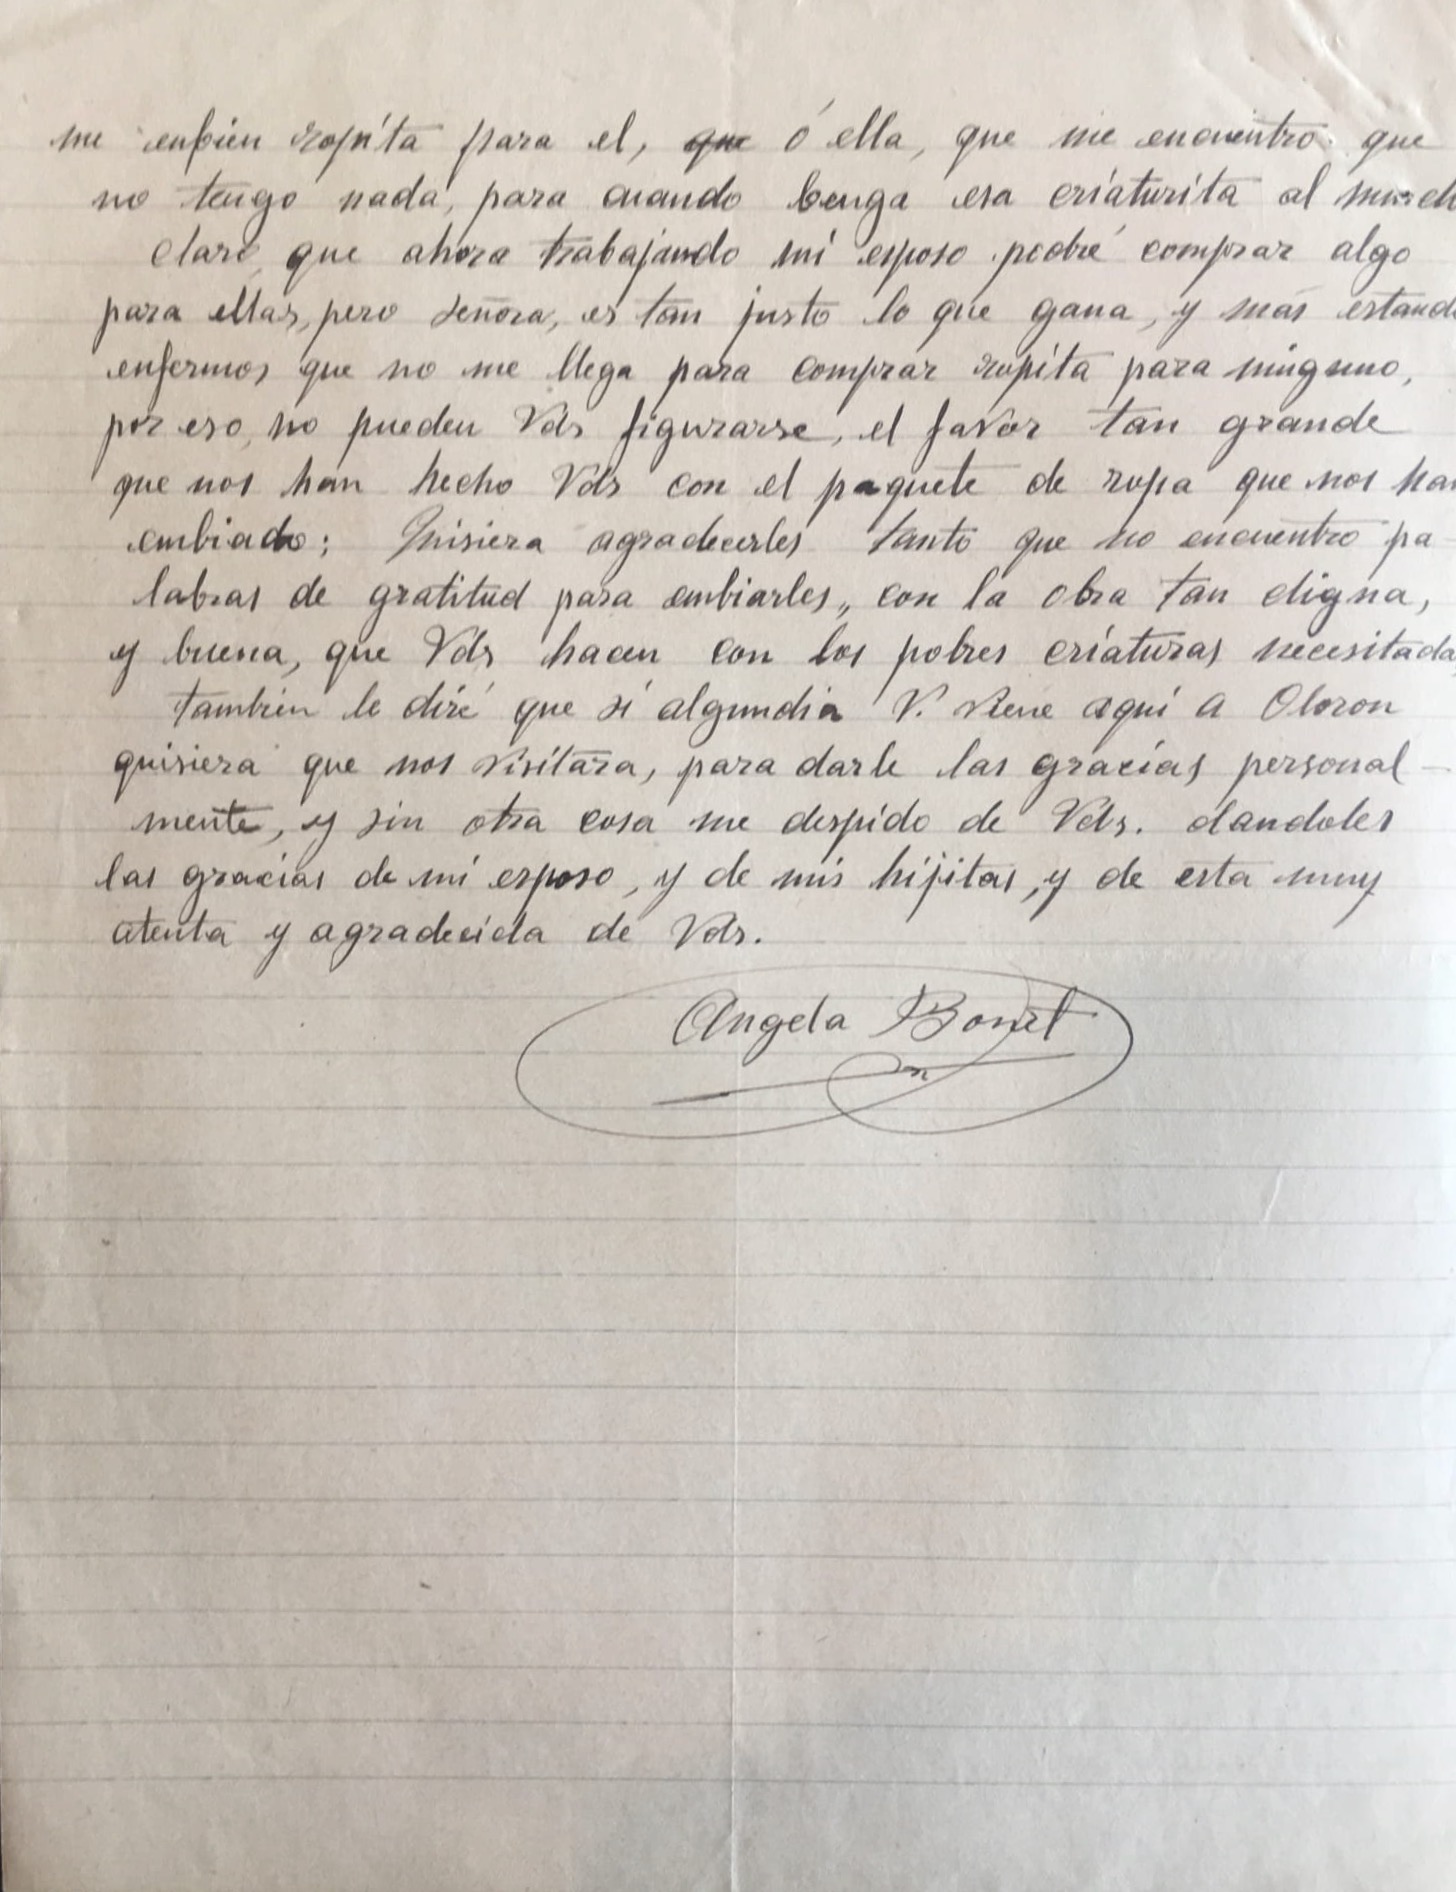 me enbien ropita para el, que ó ella, que me encuentro que
no tengo nada, para cuando benga esa criaturita al
Claro, que ahora trabajando mi esposo podré comprar algo
para ellas, pero señora, es tan justo lo que gana, y más estando
enfermos que no me llega para comprar ropita para ninguno,
por eso, no pueden Vds figurarse, el favor tan grande
que nos han hecho Vds con el paquete de ropa que nos han
embiado; Quisiera agradecerles tanto que no encuentro pa-
labras de gratitud para embiarles,, con la obra tan digna,
y buena, que Vds hacen con los pobres criaturas necesitadas
tambien le diré que si algundia V. viene aquí a Oloron
quisiera que nos visitara, para darle las gracias personal-
mente, y sin otra cosa me despido de Vds. dandoles
las gracias de mi esposo, y de mis hijitas, y de esta muy
atenta y agradecida de Vds.
Angela Bonet